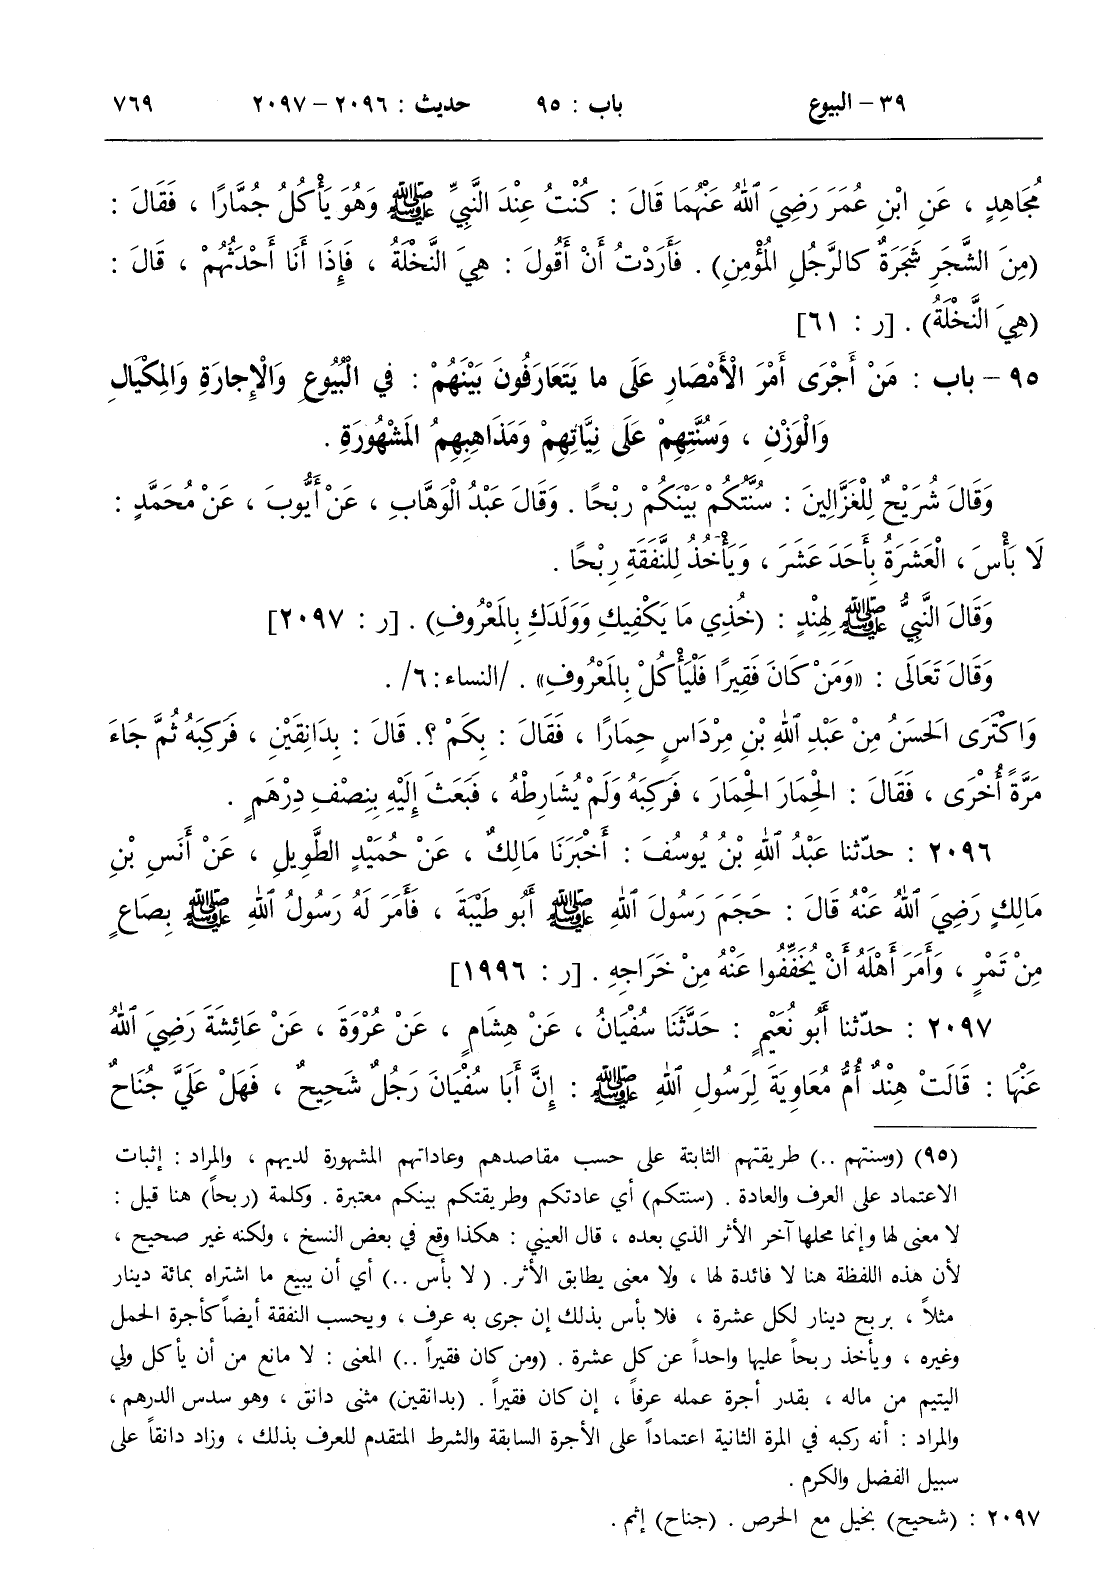 ٣٩ - البيوع باب : ٩٥ حديث : ٢٠٩٦ - ٢٠٩٧ ٧٦٩
مُجَاهِدٍ ، عَنِ ابْنِ عُمَرَ رَضِيَ ٱللهُ عَنْهُمَا قَالَ : كُنْتُ عِنْدَ النَّبِيِّ ﷺ وَهُوَ يَأْكُلُ جُمَّارًا ، فَقَالَ :
(مِنَ الشَّجَرِ شَجَرَةٌ كالرَّجُلِ المُؤْمِنِ) . فَأَرَدْتُ أَنْ أَقُولَ : هِيَ النَّخْلَةُ ، فَإِذَا أَنَا أَحْدَثُهُمْ ، قالَ :
(هِيَ النَّخْلَةُ) . [ر : ٦١]
٩٥ - باب : مَنْ أَجْرَى أَمْرَ الْأَمْصَارِ عَلَى ما يَتَعَارَفُونَ بَيْنَهُمْ : في الْبُيُوعِ وَالْإِجارَةِ وَالمِكْيَالِ
وَالْوَزْنِ ، وَسُنَّتِهِمْ عَلَى نِيَّاتِهِمْ وَمَذَاهِبِهِمُ المَشْهُورَةِ .
وَقَالَ شُرَيْحٌ لِلْغَزَّالِينَ : سُنَّتُكُمْ بَيْنَكُمْ رِبْحًا . وَقَالَ عَبْدُ الْوَهَّابِ ، عَنْ أَيُّوبَ ، عَنْ مُحَمَّدٍ :
لَا بَأْسَ ، الْعَشَرَةُ بِأَحَدَ عَشَرَ ، وَيَأْخُذُ لِلنَّفَقَةِ رِبْحًا .
وَقَالَ النَّبِيُّ ﷺ لِهِنْدٍ : (خُذِي مَا يَكْفِيكِ وَوَلَدَكِ بِالمَعْرُوفِ) . [ر : ٢٠٩٧]
وَقَالَ تَعَالَى : «وَمَنْ كَانَ فَقِيرًا فَلْيَأْكُلْ بِالمَعْرُوفِ» . /النساء: ٦/ .
وَاكْتَرَى الحَسَنُ مِنْ عَبْدِ ٱللهِ بْنِ مِرْدَاسٍ حِمَارًا ، فَقَالَ : بِكَمْ ؟. قَالَ : بِدَانِقَيْنِ ، فَرَكِبَهُ ثُمَّ جَاءَ
مَرَّةً أُخْرَى ، فَقَالَ : الحِمَارَ الحِمَارَ ، فَرَكِبَهُ وَلَمْ يُشَارِطْهُ ، فَبَعَثَ إِلَيْهِ بِنِصْفِ دِرْهَمٍ .
٢٠٩٦ : حدّثنا عَبْدُ ٱللهِ بْنُ يُوسُفَ : أَخْبَرَنَا مَالِكٌ ، عَنْ حُمَيْدٍ الطَّوِيلِ ، عَنْ أَنَسِ بْنِ
مَالِكٍ رَضِيَ ٱللهُ عَنْهُ قالَ : حَجَمَ رَسُولَ ٱللهِ ﷺ أَبُو طَيْبَةَ ، فَأَمَرَ لَهُ رَسُولُ ٱللهِ ﷺ بِصَاعٍ
مِنْ تَمْرٍ ، وَأَمَرَ أَهْلَهُ أَنْ يُخَفِّفُوا عَنْهُ مِنْ خَرَاجِهِ . [ر : ١٩٩٦]
٢٠٩٧ : حدّثنا أَبُو نُعَيْمٍ : حَدَّثَنَا سُفْيَانُ ، عَنْ هِشَامٍ ، عَنْ عُرْوَةَ ، عَنْ عَائِشَةَ رَضِيَ ٱللهُ
عَنْهَا : قَالَتْ هِنْدٌ أُمُّ مُعَاوِيَةَ لِرَسُولِ ٱللهِ ﷺ : إِنَّ أَبَا سُفْيَانَ رَجُلٌ شَحِيحٌ ، فَهَلْ عَلَيَّ جُنَاحٌ
(٩٥) (وسنتهم ..) طريقتهم الثابتة على حسب مقاصدهم وعاداتهم المشهورة لديهم ، والمراد : إثبات
الاعتماد على العرف والعادة . (سنتكم) أي عادتكم وطريقتكم بينكم معتبرة . وكلمة (ربحاً) هنا قيل :
لا معنى لها وإنما محلها آخر الأثر الذي بعده ، قال العيني : هكذا وقع في بعض النسخ ، ولكنه غير صحيح ،
لأن هذه اللفظة هنا لا فائدة لها ، ولا معنى يطابق الأثر. ( لا بأس ..) أي أن يبيع ما اشتراه بمائة دينار
مثلاً ، بربح دينار لكل عشرة ، فلا بأس بذلك إن جرى به عرف ، ويحسب النفقة أيضاً كأجرة الحمل
وغيره ، ويأخذ ربحاً عليها واحداً عن كل عشرة . (ومن كان فقيراً ..) المعنى : لا مانع من أن يأكل ولي
اليتيم من ماله ، بقدر أجرة عمله عرفاً ، إن كان فقيراً . (بدانقين) مثنى دانق ، وهو سدس الدرهم ،
والمراد : أنه ركبه في المرة الثانية اعتماداً على الأجرة السابقة والشرط المتقدم للعرف بذلك ، وزاد دانقاً على
سبيل الفضل والكرم .
٢٠٩٧ : (شحيح) بخيل مع الحرص . (جناح) إثم .